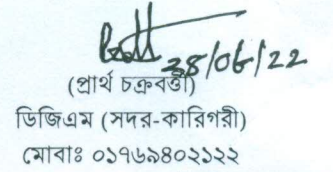 ২৪/০৮/২২
(প্রার্থ চক্রবর্ত্তী)
ডিজিএম (সদর-কারিগরী)
মোবাঃ ০১৭৬৯৪০২১২২